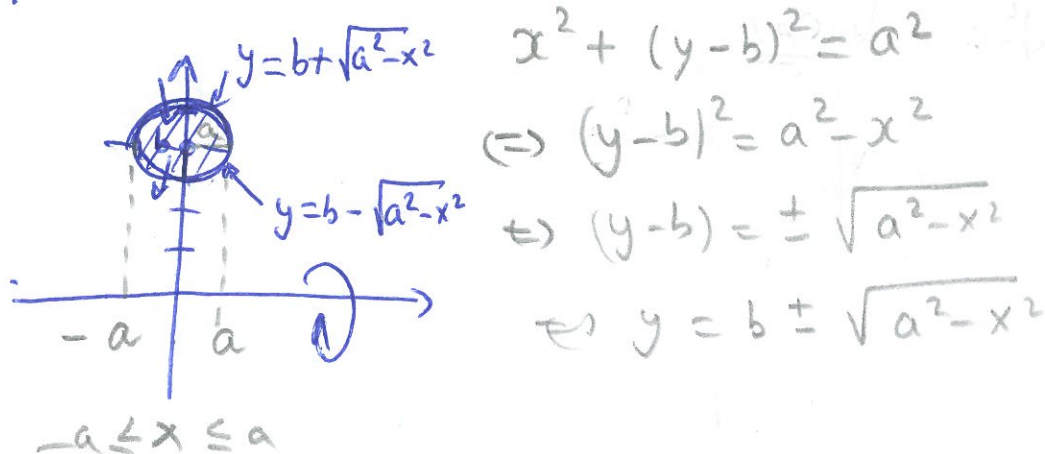 y=b+√(a²-x²)
a
b
y=b-√(a²-x²)
-a a
-a ≤ x ≤ a
x² + (y-b)² = a²
⇔ (y-b)² = a² - x²
⇔ (y-b) = ± √(a²-x²)
⇔ y = b ± √(a²-x²)